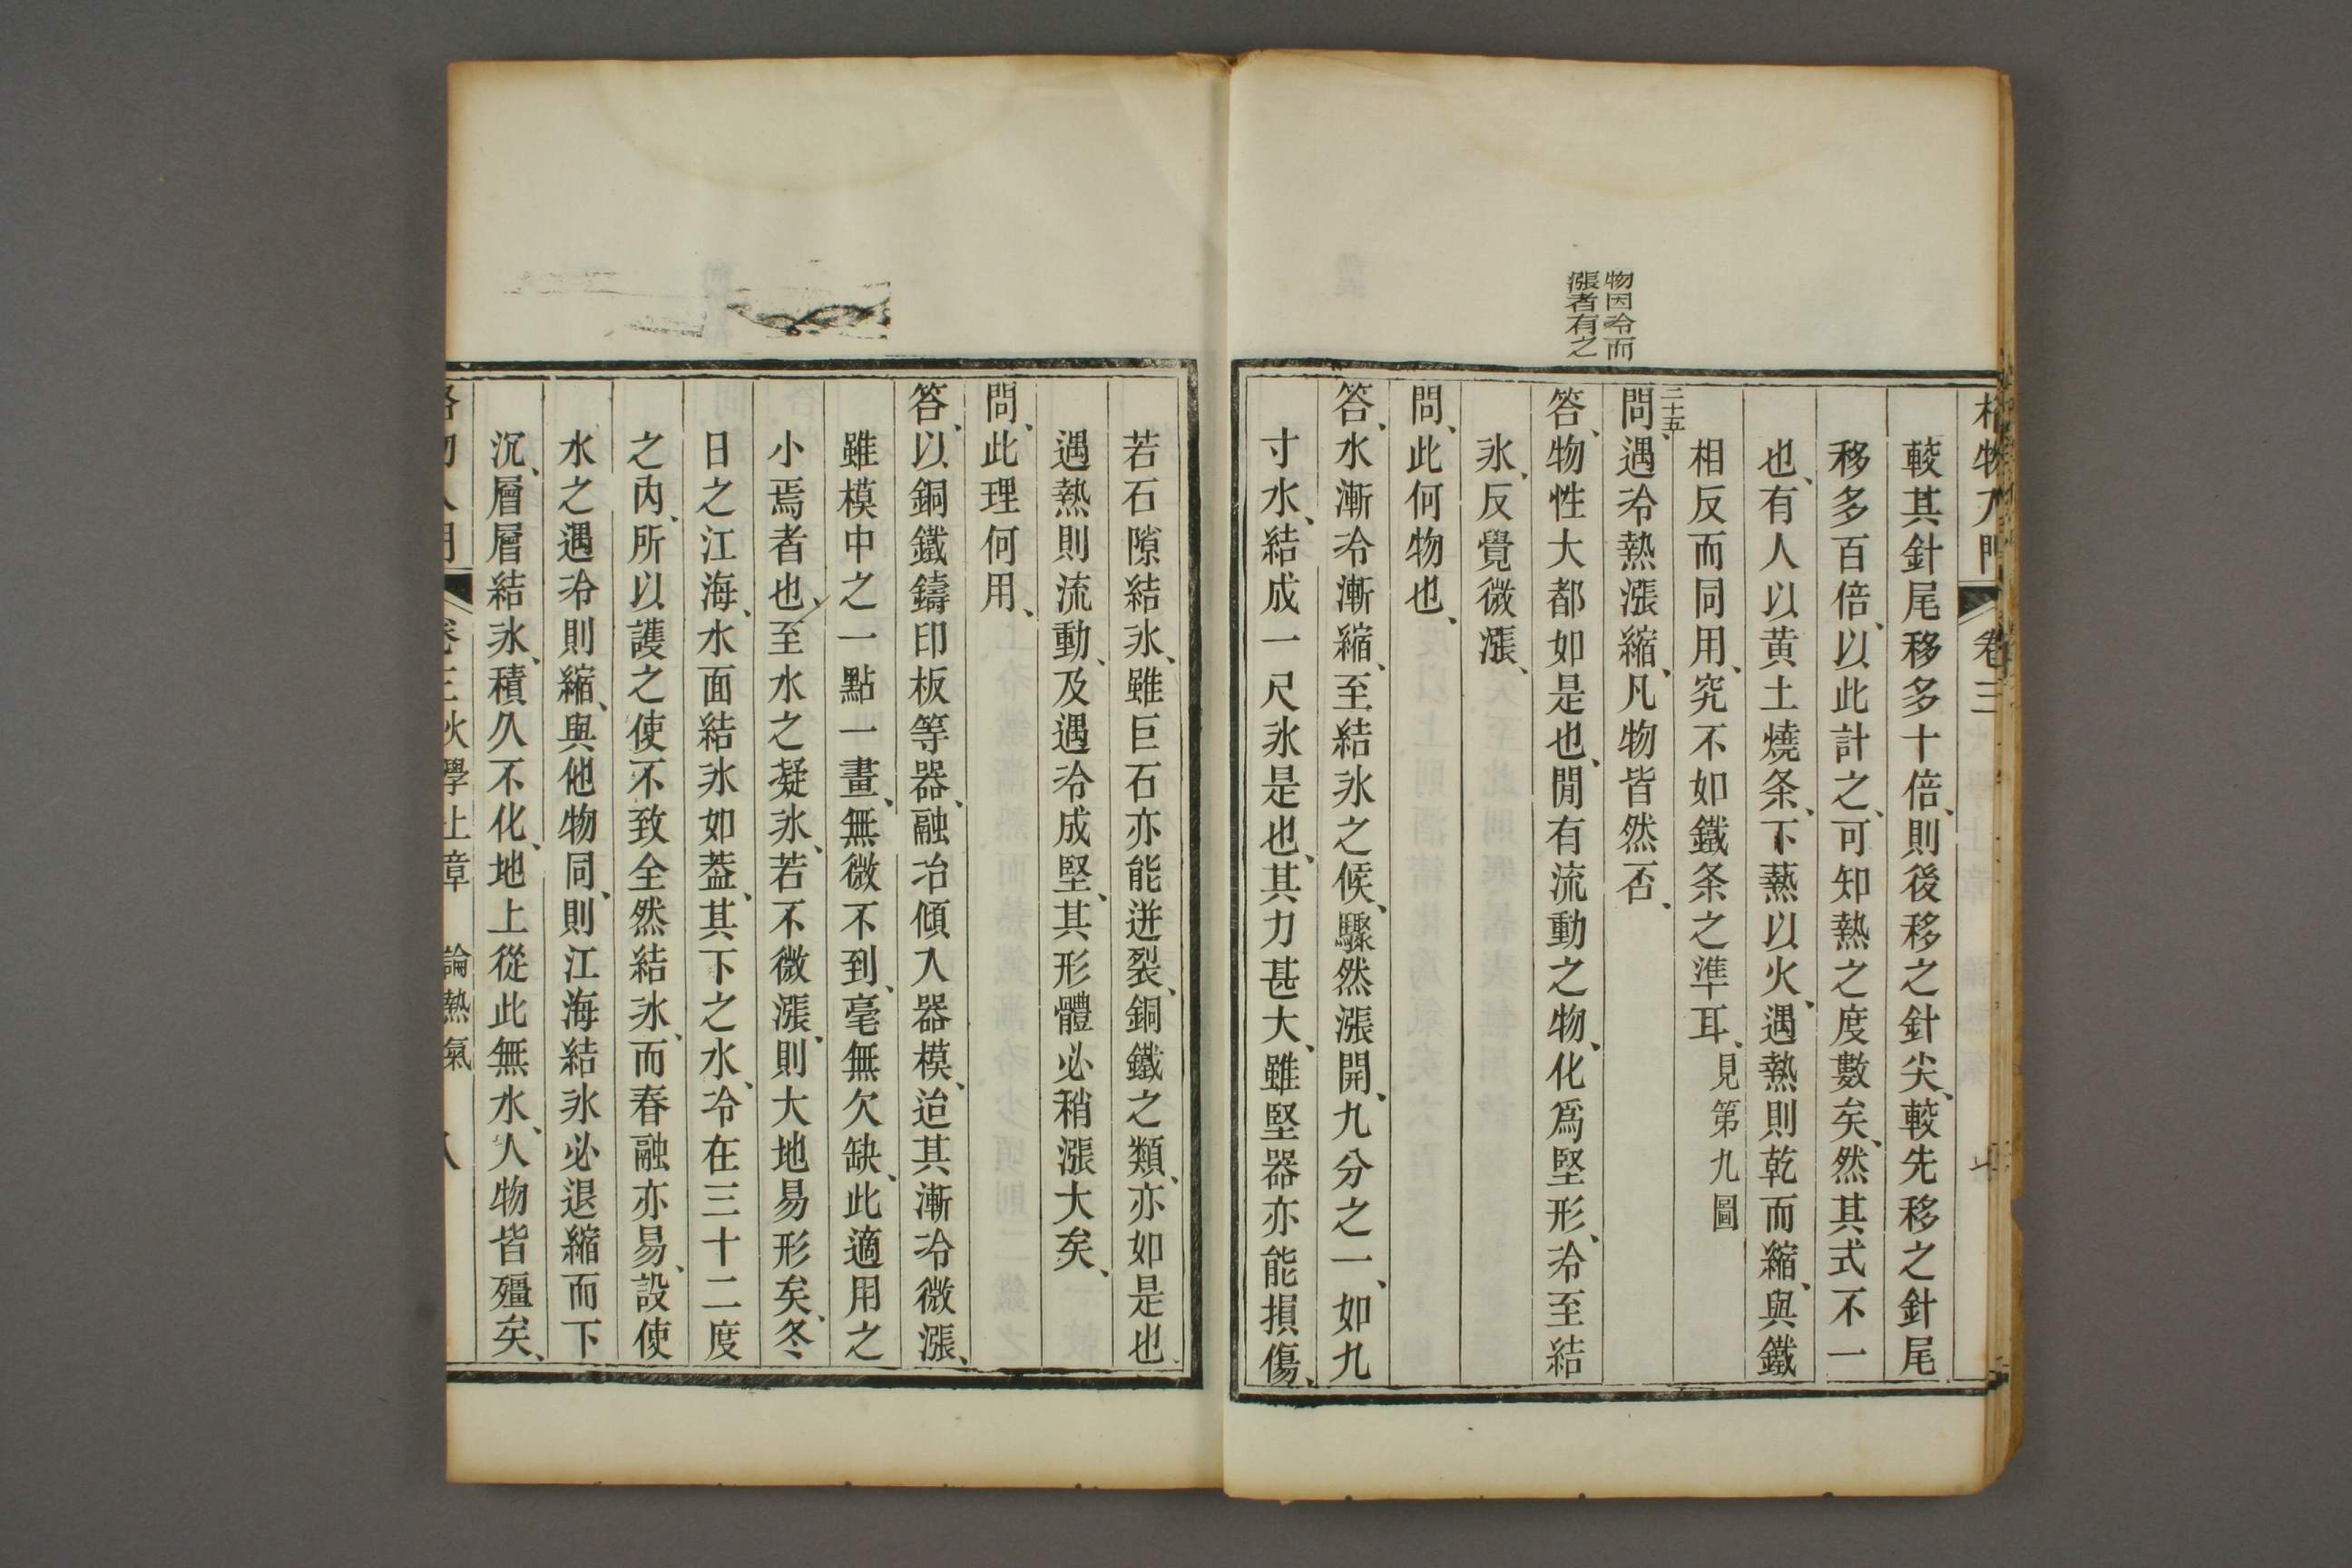 格物入門 卷三 七
較其針尾移多十倍、則後移之針尖、較先移之針尾
移多百倍、以此計之、可知熱之度數矣、然其式不一
也、有人以黄土燒条、下爇以火、遇熱則乾而縮、與鐵
相反而同用、究不如鐵条之準耳、見第九圖
物因冷而
漲者有之
二十五
問、遇冷熱漲縮、凡物皆然否、
答、物性大都如是也、閒有流動之物、化爲堅形、冷至結
氷、反覺微漲、
問、此何物也、
答、水漸冷漸縮、至結氷之候、驟然漲開、九分之一、如九
寸水、結成一尺氷是也、其力甚大、雖堅器亦能損傷、
若石隙結氷、雖巨石亦能迸裂、銅鐵之類、亦如是也、
遇熱則流動、及遇冷成堅、其形體必稍漲大矣、
問、此理何用、
答、以銅鐵鑄印板等器、融冶傾入器模、迨其漸冷微漲、
雖模中之一點一畫、無微不到、毫無欠缺、此適用之
小焉者也、至水之凝氷、若不微漲、則大地易形矣、冬
日之江海、水面結氷如葢、其下之水、冷在三十二度
之內、所以護之使不致全然結氷、而春融亦易、設使
水之遇冷則縮、與他物同、則江海結氷必退縮而下
沉、層層結氷、積久不化、地上從此無水、人物皆殭矣、
格物入門 卷三火學上章 論熱氣 八